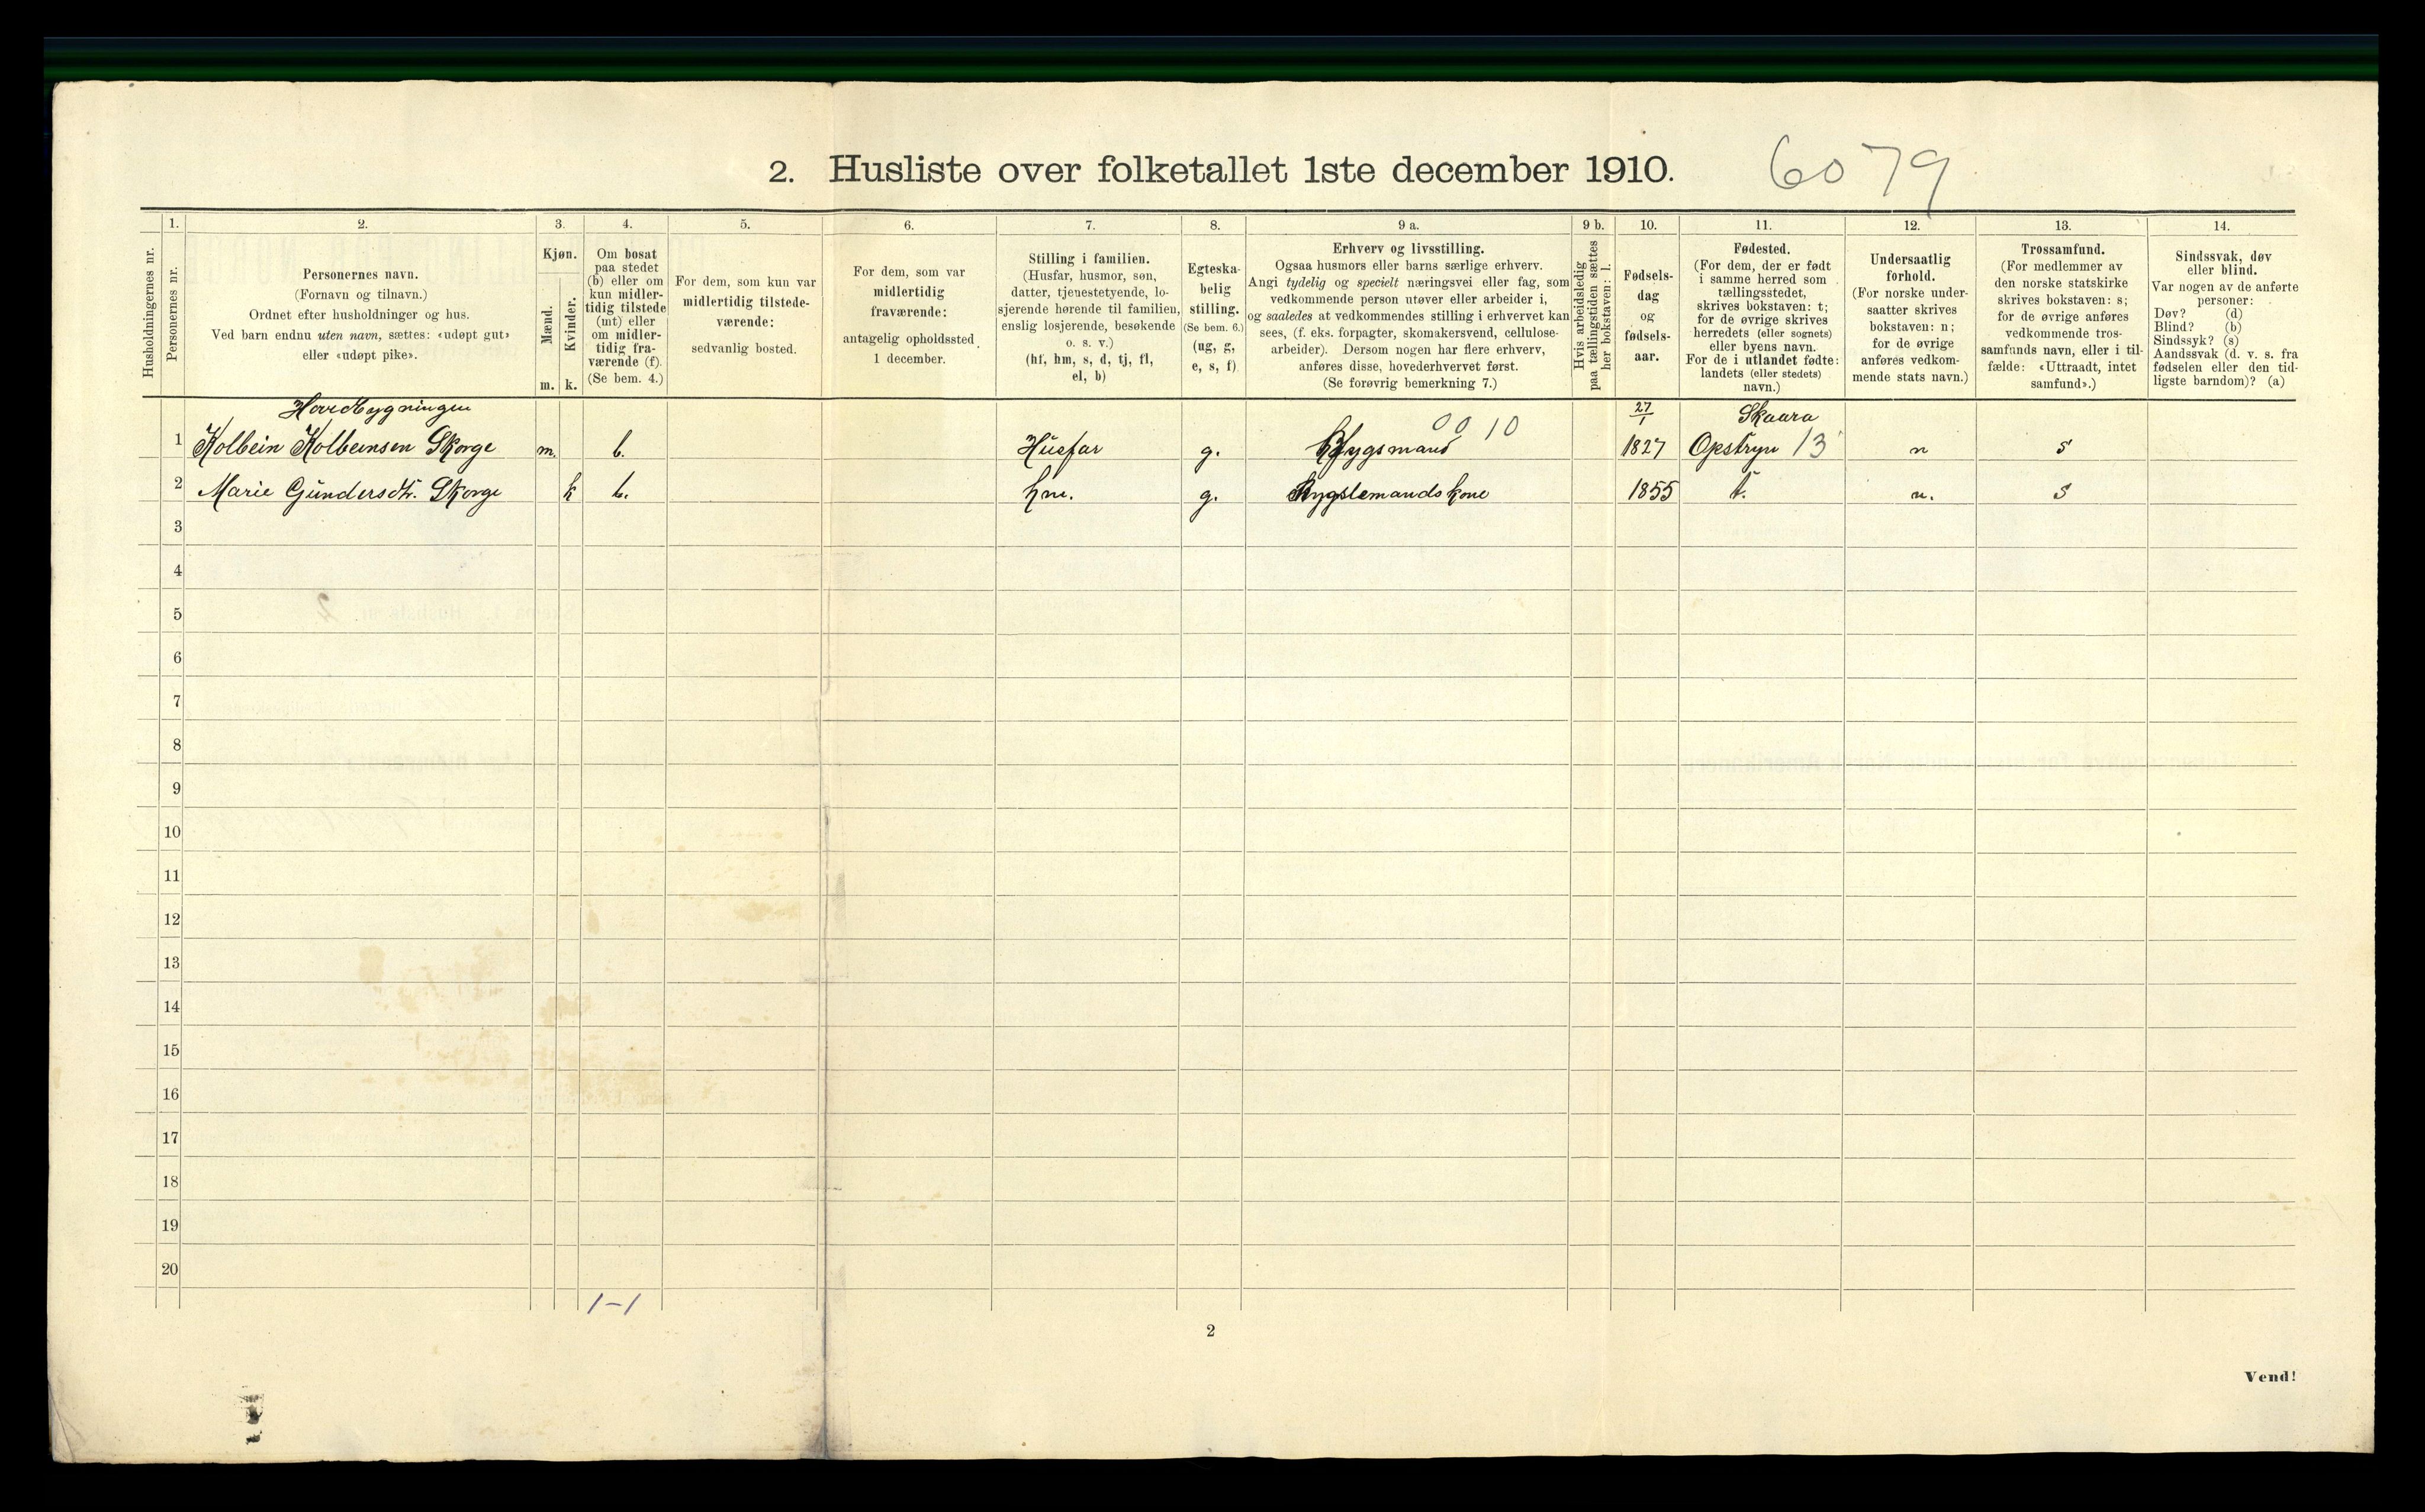 2. Husliste over folketallet 1ste december 1910. 6079
Husholdningernes nr.
1.
Personernes nr.
2.
Personernes navn.
(Fornavn og tilnavn.)
Ordnet efter husholdninger og hus.
Ved barn endnu uten navn, sættes: «udøpt gut»
eller «udøpt pike».
3.
Kjøn.
Mænd.
m.
Kvinder.
k.
4.
Om bosat
paa stedet
(b) eller om
kun midler-
tidig tilstede
(mt) eller
om midler-
tidig fra-
værende (f).
(Se bem. 4.)
5.
For dem, som kun var
midlertidig tilstede-
værende:
sedvanlig bosted.
6.
For dem, som var
midlertidig
fraværende:
antagelig opholdssted
1 december.
7.
Stilling i familien.
(Husfar, husmor, søn,
datter, tjenestetyende, lo-
sjerende hørende til familien,
enslig losjerende, besøkende
o. s. v.)
(hf, hm, s, d, tj, fl,
el, b)
8.
Egteska-
belig
stilling.
(Se bem. 6.)
(ug, g,
e, s, f)
9 a.
Erhverv og livsstilling.
Ogsaa husmors eller barns særlige erhverv.
Angi tydelig og specielt næringsvei eller fag, som
vedkommende person utøver eller arbeider i,
og saaledes at vedkommendes stilling i erhvervet kan
sees, (f. eks. forpagter, skomakersvend, cellulose-
arbeider). Dersom nogen har flere erhverv,
anføres disse, hovederhvervet først.
(Se forøvrig bemerkning 7.)
9 b.
Hvis arbeidsledig
paa tællingstiden sættes
her bokstaven: l.
10.
Fødsels-
dag
og
fødsels-
aar.
11.
Fødested.
(For dem, der er født
i samme herred som
tællingsstedet,
skrives bokstaven: t;
for de øvrige skrives
herredets (eller sognets)
eller byens navn.
For de i utlandet fødte:
landets (eller stedets)
navn.)
12.
Undersaatlig
forhold.
(For norske under-
saatter skrives
bokstaven: n;
for de øvrige
anføres vedkom-
mende stats navn.)
13.
Trossamfund.
(For medlemmer av
den norske statskirke
skrives bokstaven: s;
for de øvrige anføres
vedkommende tros-
samfunds navn, eller i til-
fælde: «Uttraadt, intet
samfund».)
14.
Sindssvak, døv
eller blind.
Var nogen av de anførte
personer:
Døv? (d)
Blind? (b)
Sindssyk? (s)
Aandssvak (d. v. s. fra
fødselen eller den tid-
ligste barndom)? (a)
Hovedbygningen 27/1 Skaara
1 Kolbein Kolbeinsen Skorge m. b. Husfar g. 00 10 1827 Opstryn 13 n s
2 Marie Gundersdtr. Skorge k b. hm. g. 1855 t. n. s
3
4
5
6
7
8
9
10
11
12
13
14
15
16
17
18
19
20
1-1
2
Vend!